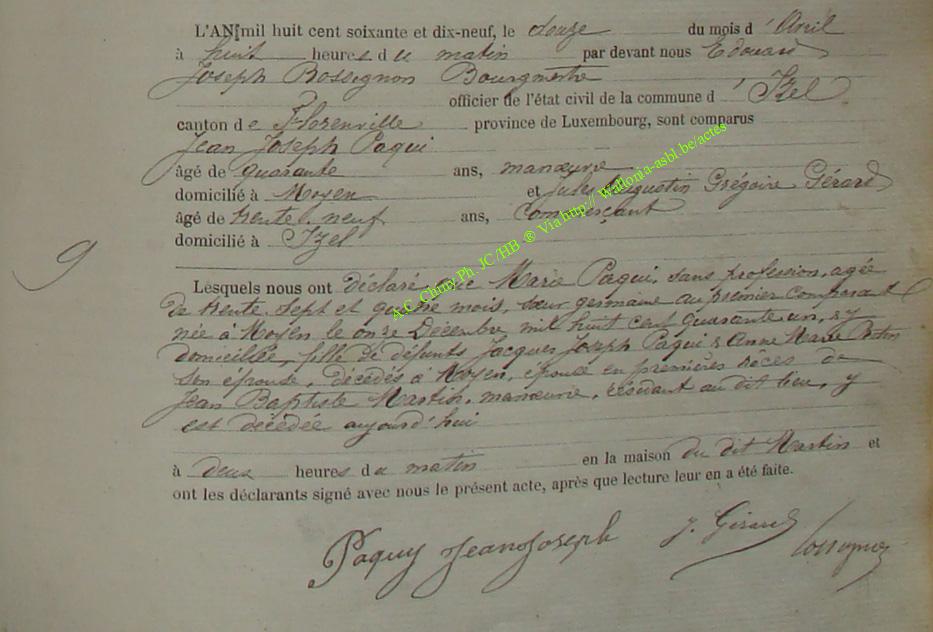 L'AN mil huit cent soixante et dix-neuf, le douze du mois d'Avril
à huit heures du matin par devant nous Edouard
Joseph Rossignon Bourgmestre
officier de l'état civil de la commune d'Izel
canton de Florenville province de Luxembourg, sont comparus
Jean Joseph Paqui
âgé de quarante ans, manœuvre
domicilié à Moyen et Jules Grégoire Gérard
âgé de trente neuf ans, commerçant
domicilié à Izel
9
Lesquels nous ont déclaré que Marie Paqui, sans profession, agée
de trente sept et quatre mois, sœur germaine au premier comparant
née à Moyen le onze Décembre mil huit cent quarante un, s y
domiciliée, fille de défunts Jacques Joseph Paqui & Anne Marie
son épouse, décédés à Moyen, épouse en premières nôces de
Jean Baptiste Martin, manœuvre, résidant au dit lieu, y
est décédée aujourd'hui
à deux heures du matin en la maison du dit Martin et
ont les déclarants signé avec nous le présent acte, après que lecture leur en a été faite.
Paquy Jean Joseph J. Gérard Rossignon
A.C. Chiny Ph. JC /HB ® Via http:// Wallonia-asbl.be/actes